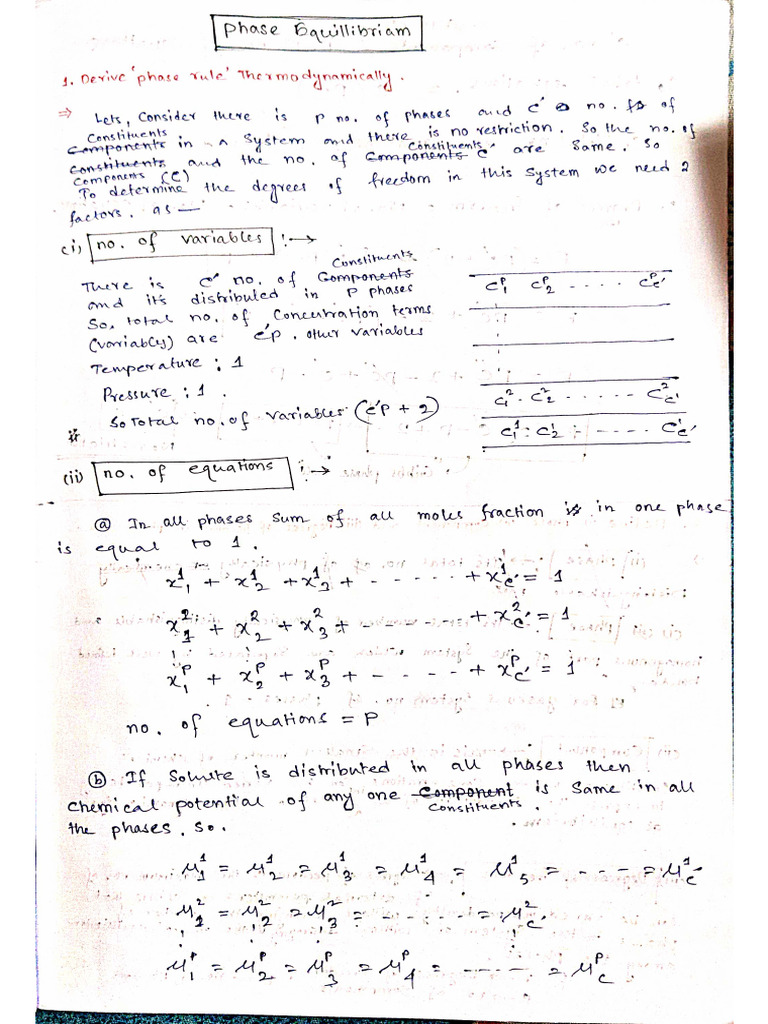 Phase Equillibriam
1. Derive 'phase rule' Thermodynamically.
⇒ Lets, Consider there is P no. of phases and C' no. of
Constituents
Components in a System and there is no restriction. So the no. of
Constituents
Constituents and the no. of Components C' are Same. So
Components (C)
To determine the degrees of freedom in this System we need 2
factors. as —
(i) no. of variables :→
Constituents
There is C' no. of Components
and its distributed in P phases
So, total no. of Concentration terms
(variably) are C'P. other variables
Temperature : 1
Pressure : 1.
So Total no. of variables (C'P + 2)
C₁ᵖ C₂ᵖ .... Cᵖc'
C₁² . C₂² ...... C²c'
C₁¹ . C₂¹ - ..... C¹c'
(ii) no. of equations :→
ⓐ In all phases Sum of all moles fraction is in one phase
is equal to 1.
x₁¹ + x₂¹ + x₃¹ + ------ + x¹c' = 1
x₁² + x₂² + x₃² + ------ + x²c' = 1
x₁ᵖ + x₂ᵖ + x₃ᵖ + ------ + xᵖc' = 1
no. of equations = P
ⓑ If Solute is distributed in all phases then
chemical potential of any one Component is Same in all
Constituents.
the phases. So.
μ₁¹ = μ₂¹ = μ₃¹ = μ₄¹ = μ₅¹ = --- = μ¹c'
μ₁² = μ₂² = μ₃² = ------ = μ²c'
μ₁ᵖ = μ₂ᵖ = μ₃ᵖ = μ₄ᵖ = ------ = μᵖc